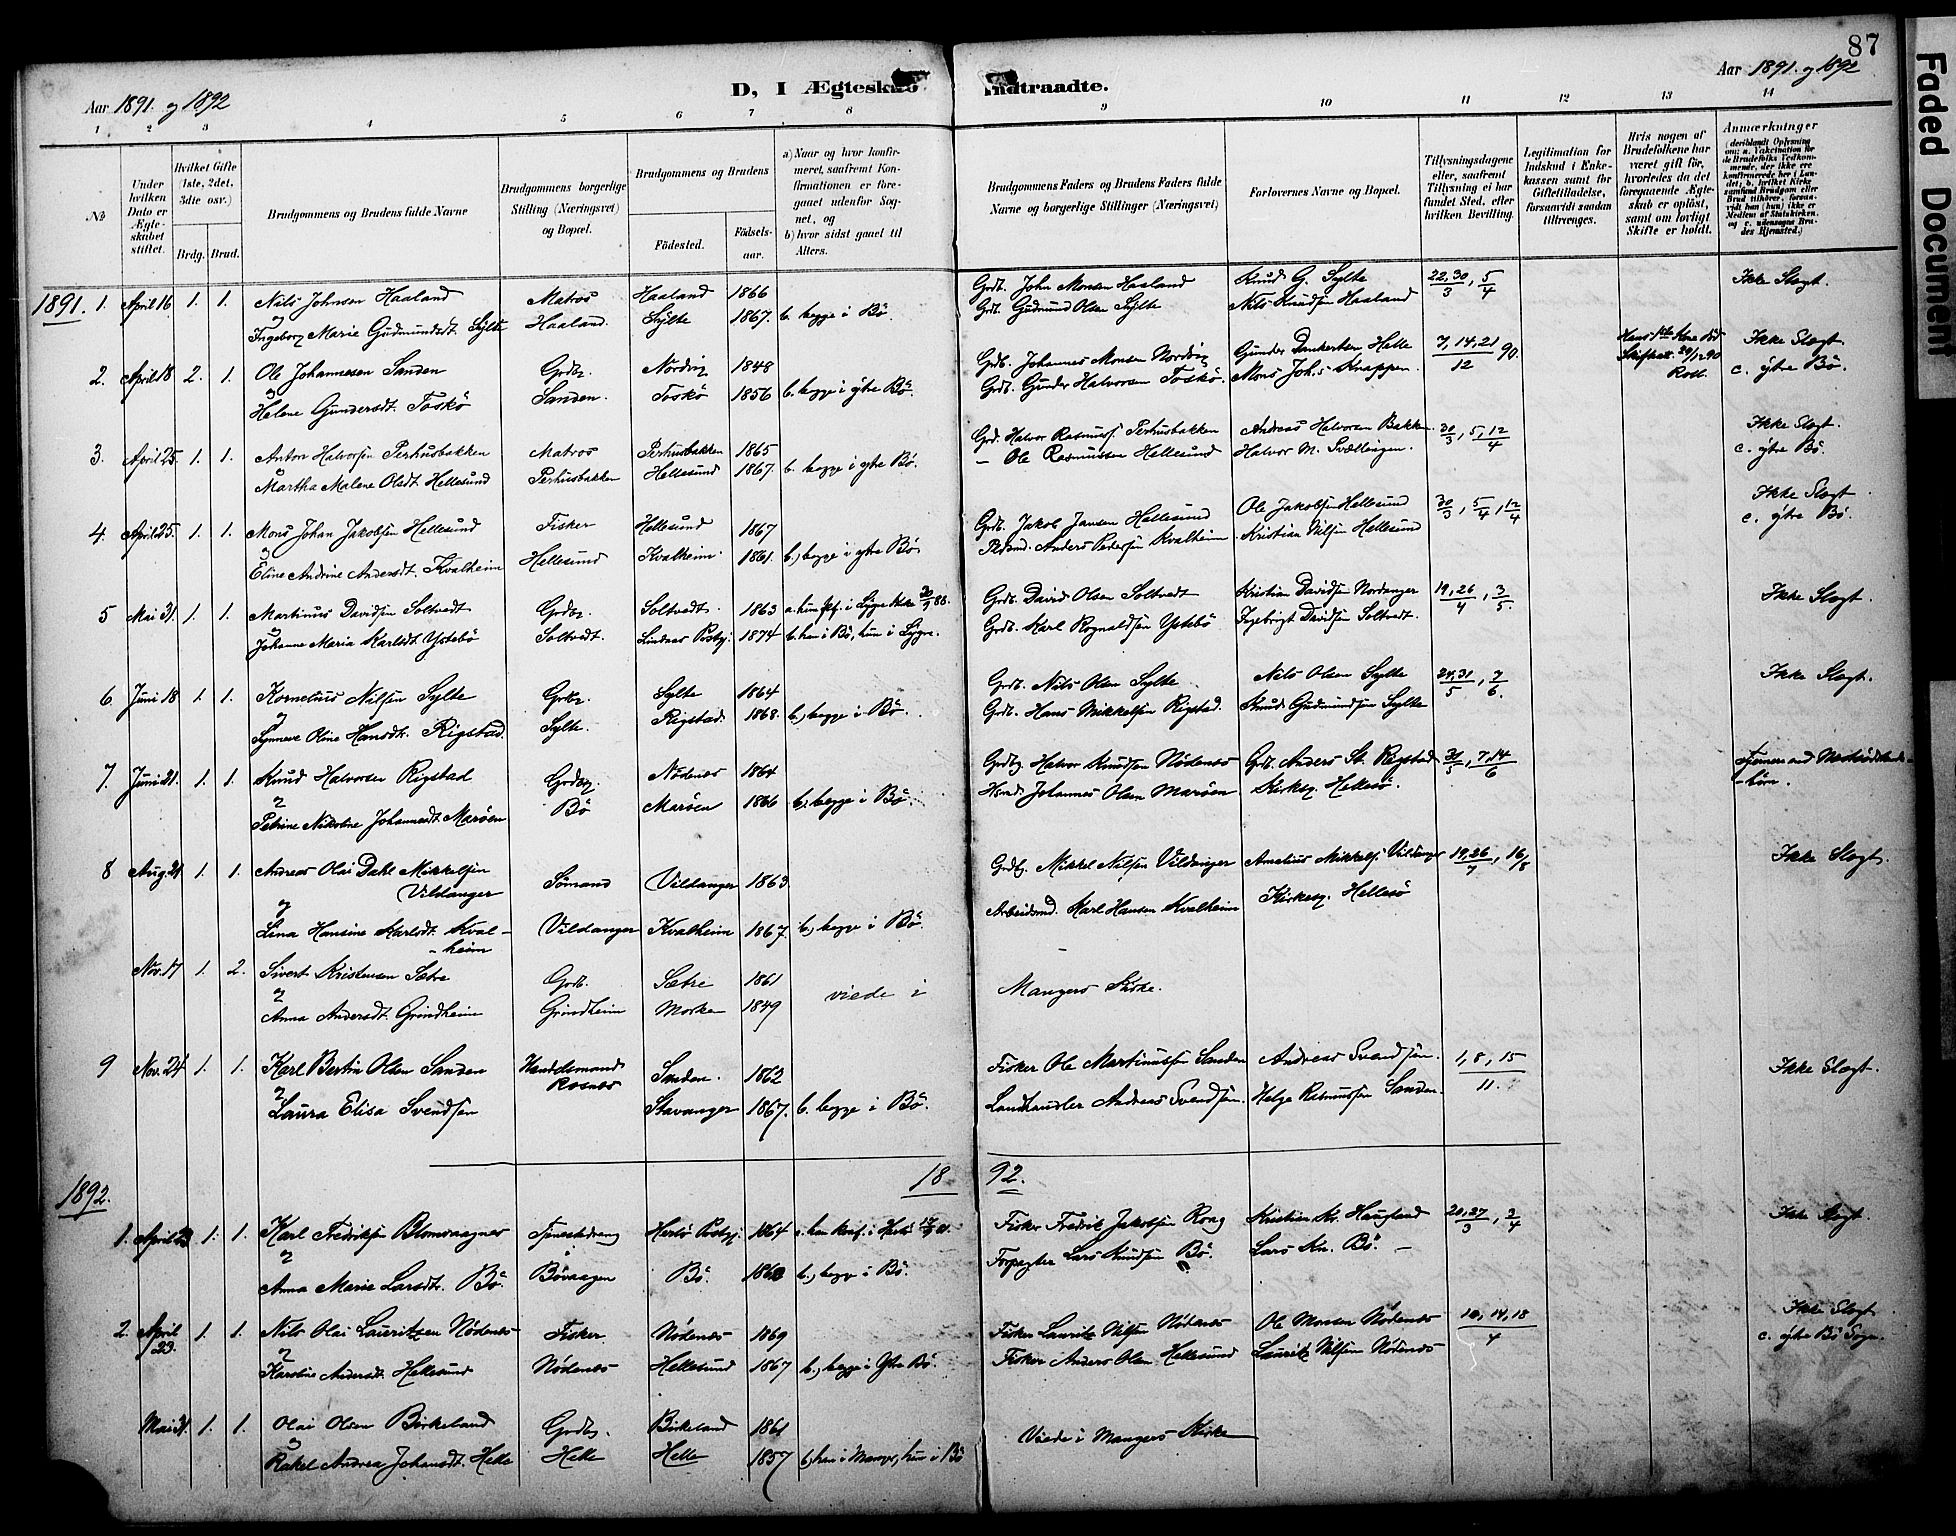 87
Faded Document
Aar 1891. og 1892
D, I Ægteskab Indtraadte.
Aar 1891. og 1892
1 2 3 4 5 6 7 8 9 10 11 12 13 14
No
Under hvilken Dato er Ægteskabet stiftet.
Hvilket Gifte (1ste, 2det, 3die osv.)
Brdg. Brud.
Brudgommens og Brudens fulde Navne
Brudgommens borgerlige Stilling (Næringsvei) og Bopæl.
Brudgommens og Brudens
Fødested.
Fødselsaar.
a) Naar og hvor konfirmeret, saafremt Konfirmationen er foregaaet udenfor Sognet, og
b) hvor sidst gaaet til Alters.
Brudgommens Faders og Brudens Faders fulde Navne og borgerlige Stillinger (Næringsvei)
Forlovernes Navne og Bopæl.
Tillysningsdagene eller, saafremt Tillysning ei har fundet Sted, efter hvilken Bevilling.
Legitimation for Indskud i Enkekassen samt for Giftetilladelse, forsaavidt saadan tiltrænges.
Hvis nogen af Brudefolkene har været gift før, hvorledes da det foregaaende Ægteskab er opløst, samt om lovligt Skifte er holdt.
Anmærkninger
1891. 1. April 16 1. 1. Nils Johnsen Haaland Matros Haaland 1866 Grdb. John Monsen Haaland Knud G. Sylte 22,30/3, 5/4 Ikke Slægt.
og Ingeborg Marie Gudmundsdt. Sylte Haaland. Sylte 1867. b. begge i Bø. Grdb. Gudmund Olsen Sylte Nils Knudsen Haaland
2. April 18 2. 1. Ole Johannesen Sanden Grdbr. Nordvig 1848 Grdb. Johannes Monsen Nordvig Gunder Dankertsen Helle 7, 14, 21/12 90. Ikke Slægt
og Helene Gundersdt. Toskø Sanden. Toskø 1856 b. begge i ytre Bø. Grdb. Gunder Halvorsen Toskø. Mons Joh.s Knappen. c. ytre Bø.
3. April 25. 1. 1. Anton Halvorsen Perhusbakken Matros Perhusbakken 1865 Grd. Halvor Rasmuss. Perhusbakken Andreas Halvorsen Bakken. 30/3, 5,12/4 Ikke Slægt.
og Martha Malene Olsdt. Hellesund Perhusbakken Hellesund 1867. b. begge i ytre Bø. – Ole Rasmussen Hellesund Halvor M. c. ytre Bø.
4. April 25. 1. 1. Mons Johan Jakobsen Hellesund Fisker Hellesund 1867 Grdb. Jakob Jansen Hellesund Ole Jakobsen Hellesund 30/3, 5/4, 12/4 Ikke Slægt.
og Eline Andrine Andersdt. Kvalheim Hellesund Kvalheim. 1861. b.) begge i ytre Bø. Anders Pedersen Kvalheim Kristian Nilsen Hellesund c. ytre Bø.
5 Mai 31. 1. 1. Martinus Davidsen Soltvedt Grdbr. Soltvedt. 1863 Grdb. David Olsen Soltvedt Kristian Davidsen Nordanger 19,26/4, 3/5 Ikke Slægt.
og Johanne Maria Karlsdt. Ystebø Soltvedt. Lindaas Præstg. 1874 b. han i Bø, hun i Lygre. Grdb. Karl Rognaldsen Ystebø Ingebrigt Davidsen Soltvedt.
6. Juni 18 1. 1. Kornelius Nilsen Sylte Grbr. Sylte 1864 Grdb. Nils Olsen Sylte Nils Olsen Sylte 24,31/5, 7/6. Ikke Slægt.
og Synneve Oline Hansdt. Rigstad. Sylte. Rigstad. 1868. b.) begge i Bø. Grdb. Hans Mikkelsen Rigstad. Knud Gudmundsen Sylte
7. Juni 21. 1. 1. Knud Halvorsen Rigstad Grdbr. Nødenes 1864 Grdbr Halvor Knudsen Nødenes Grdb. Anders St. Rigstad 31/5, 7,14/6
og Petrine Nikoline Johannesdt. Marøen Bø Marøen 1866 b.) begge i Bø. Husmd. Johannes Olsen Marøen Kirkesg. Hellesø.
8 Aug. 21 1. 1. Andreas Olai Dahl Mikkelsen Vildanger Sømand Vildanger 1863. Grdbr. Mikkel Nilsen Vildanger Amelius Mikkels. Vildanger 19,26/7, 16/8 Ikke Slægt.
og Lina Hansine Karlsdt. Kvalheim Vildanger Kvalheim 1867. b.) begge i Bø. Arbeidsmd. Karl Hansen Kvalheim Kirkesg. Hellesø
Nov. 17 1. 2. Sivert Kristensen Sætre Grdb. Sætre 1861 viede i Mangers Kirke.
og Anna Andersdt. Grindheim Grindheim Morken 1849
9 Nov. 24 1. 1. Karl Bertin Olsen Sanden Handelsmand Rosnes Sanden. 1862 Fisker Ole Martinussen Sanden Andreas Svendsen. 1, 8, 15/11. Ikke Slægt.
og Laura Elisa Svendsen Stavanger 1867. b. begge i Bø. Landhandler Andreas Svendsen. Helge Rasmussen Sanden.
1892. 18 92.
1. April 23 1. 1. Karl Fredriksen Blomvaagnes Tjenestedreng Herlø Præstg. 1864 Fisker Fredrik Jakobsen Rong Kristian Kr. Haugland 20,27/3, 3/4 Ikke Slægt.
og Anna Marie Larsdt. Bø. Bøvaagen Bø. b.) begge i Bø. Forpagter Lars Knudsen Bø. Lars Kn. Bø. –
2. April 23. 1. 1. Nils Olai Lauritzen Nødenes Fisker Nødenes 1869 Fisker Lauritz Nilsen Nødenes Ole Monsen Nødenes 10, 14, 18/4 Ikke Slægt
og Karoline Andersdt. Hellesund Nødenes Hellesund 1867 b.) begge i Ytre Bø. Fisker Anders Olsen Hellesund Lauritz Nilsen Nødenes c. ytre Bø Sogn.
Mai 31. 1. 1. Olai Olsen Birkeland Grdbr. Birkeland 1861 Viede i Mangers Kirke
og Rakel Andrea Johansdt. Helle Helle Helle 1857 b.) han i Manger, hun i Bø